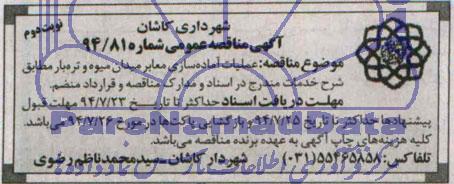 شهرداری کاشان
نوبت دوم
آگهی مناقصه عمومی شماره ۹۴/۸۱
موضوع مناقصه: عملیات آماده‌سازی معابر میدان میوه و تره‌بار مطابق
شرح خدمت مندرج در اسناد و مدارک مناقصه و قرارداد منضم.
مهلت دریافت اسناد حداکثر تا تاریخ ۹۴/۷/۲۳ مهلت قبول
پیشنهادها حداکثر تا تاریخ ۹۴/۷/۲۵ و بازگشایی پاکت‌ها در مورخ ۹۴/۷/۲۶ می‌باشد.
کلیه هزینه‌های چاپ آگهی به عهده برنده مناقصه می‌باشد.
تلفاکس: ۵۵۴۶۵۸۵۸(۰۳۱) شهردار کاشان - سیدمحمد ناظم رضوی
ParsNamadData